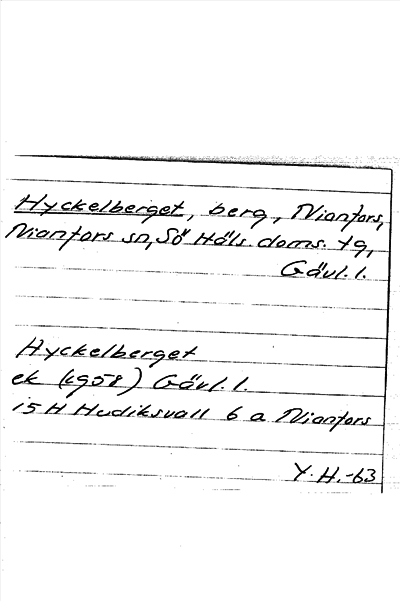 Hyckelberget, berg, Nianfors,
Nianfors sn, Sö Häls. doms. tg,
Gävl. l.
Hyckelberget
ek (1958) Gävl. l.
15 H Hudiksvall 6 a Nianfors
Y. H. -63